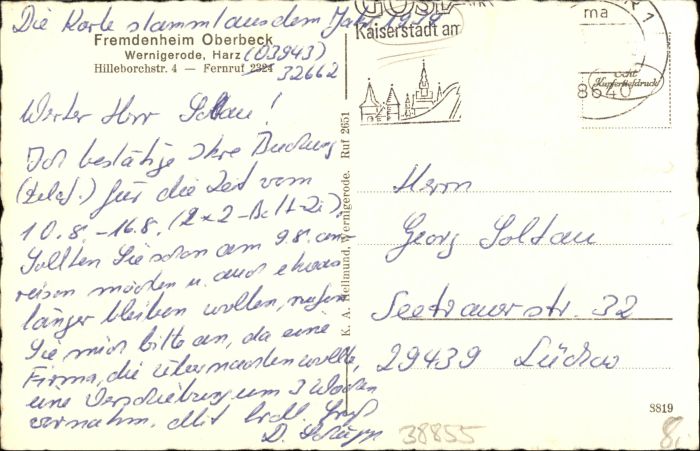 Die Karte stammt aus dem Jahr 1939
Fremdenheim Oberbeck
Wernigerode, Harz (03943)
Hilleborchstr. 4 — Fernruf 2324 32662
Werter Herr Soltau!
Ich bestätige Ihre Buchung
(telef.) für die Zeit vom
10.8. - 16.8. (2 x 2-Bett-Zi.)
Sollten Sie schon am 9.8. an-
reisen möchten u. auch etwas
länger bleiben wollen, rufen
Sie mich bitte an, da eine
Firma, die übernachten wollte,
eine Verschiebung um 3 Wochen
vornahm. Mit frdl. Gruß
D.
K. A. Hellmund, Wernigerode. Ruf 2651
Kaiserstadt am
rma
R 1
8640
Echt
Kupfertiefdruck
Herrn
Georg Soltau
Seetrauerstr. 32
29439 Lüchow
S819
38855
8,-